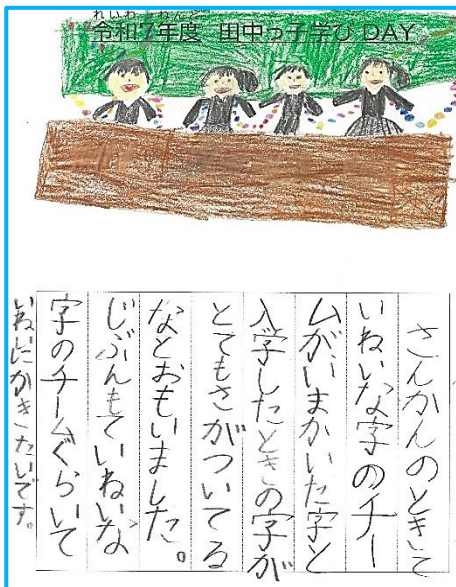 れいわ ねんど
令和7年度 田中っ子学び DAY
さんかんのときて
いねいな字のチー
ムがいまかいた字と
入学したときの字が
とてもさがついてる
なとおもいました。
じぶんもていねいな
字のチームぐらいて
いねいにかきたいです。